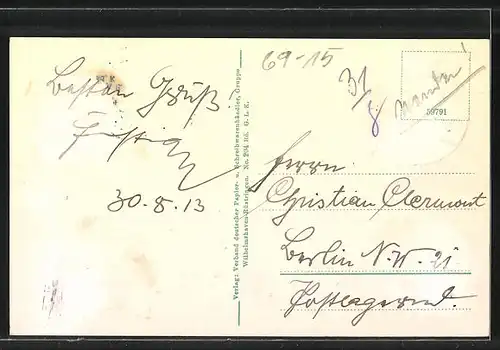 69-15
31/8
59791
Besten Gruß
30.8.13
Verlag: Verband deutscher Papier- u. Schreibwarenhändler, Gruppe
Wilhelmshaven-Rüstringen. No. 294 Bd. G. L. K.
Herrn
Christian Clermont
Berlin N.W. 21
Postlagernd.